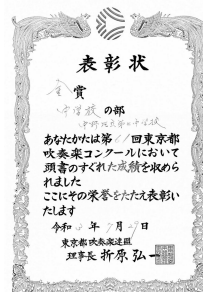 表彰状
金賞
中学校の部
あなたがたは第61回東京都
吹奏楽コンクールにおいて
頭書のすぐれた成績を収めら
れました
ここにその栄誉をたたえ表彰い
たします
令和3年7月29日
東京都吹奏楽連盟
理事長 折原弘一